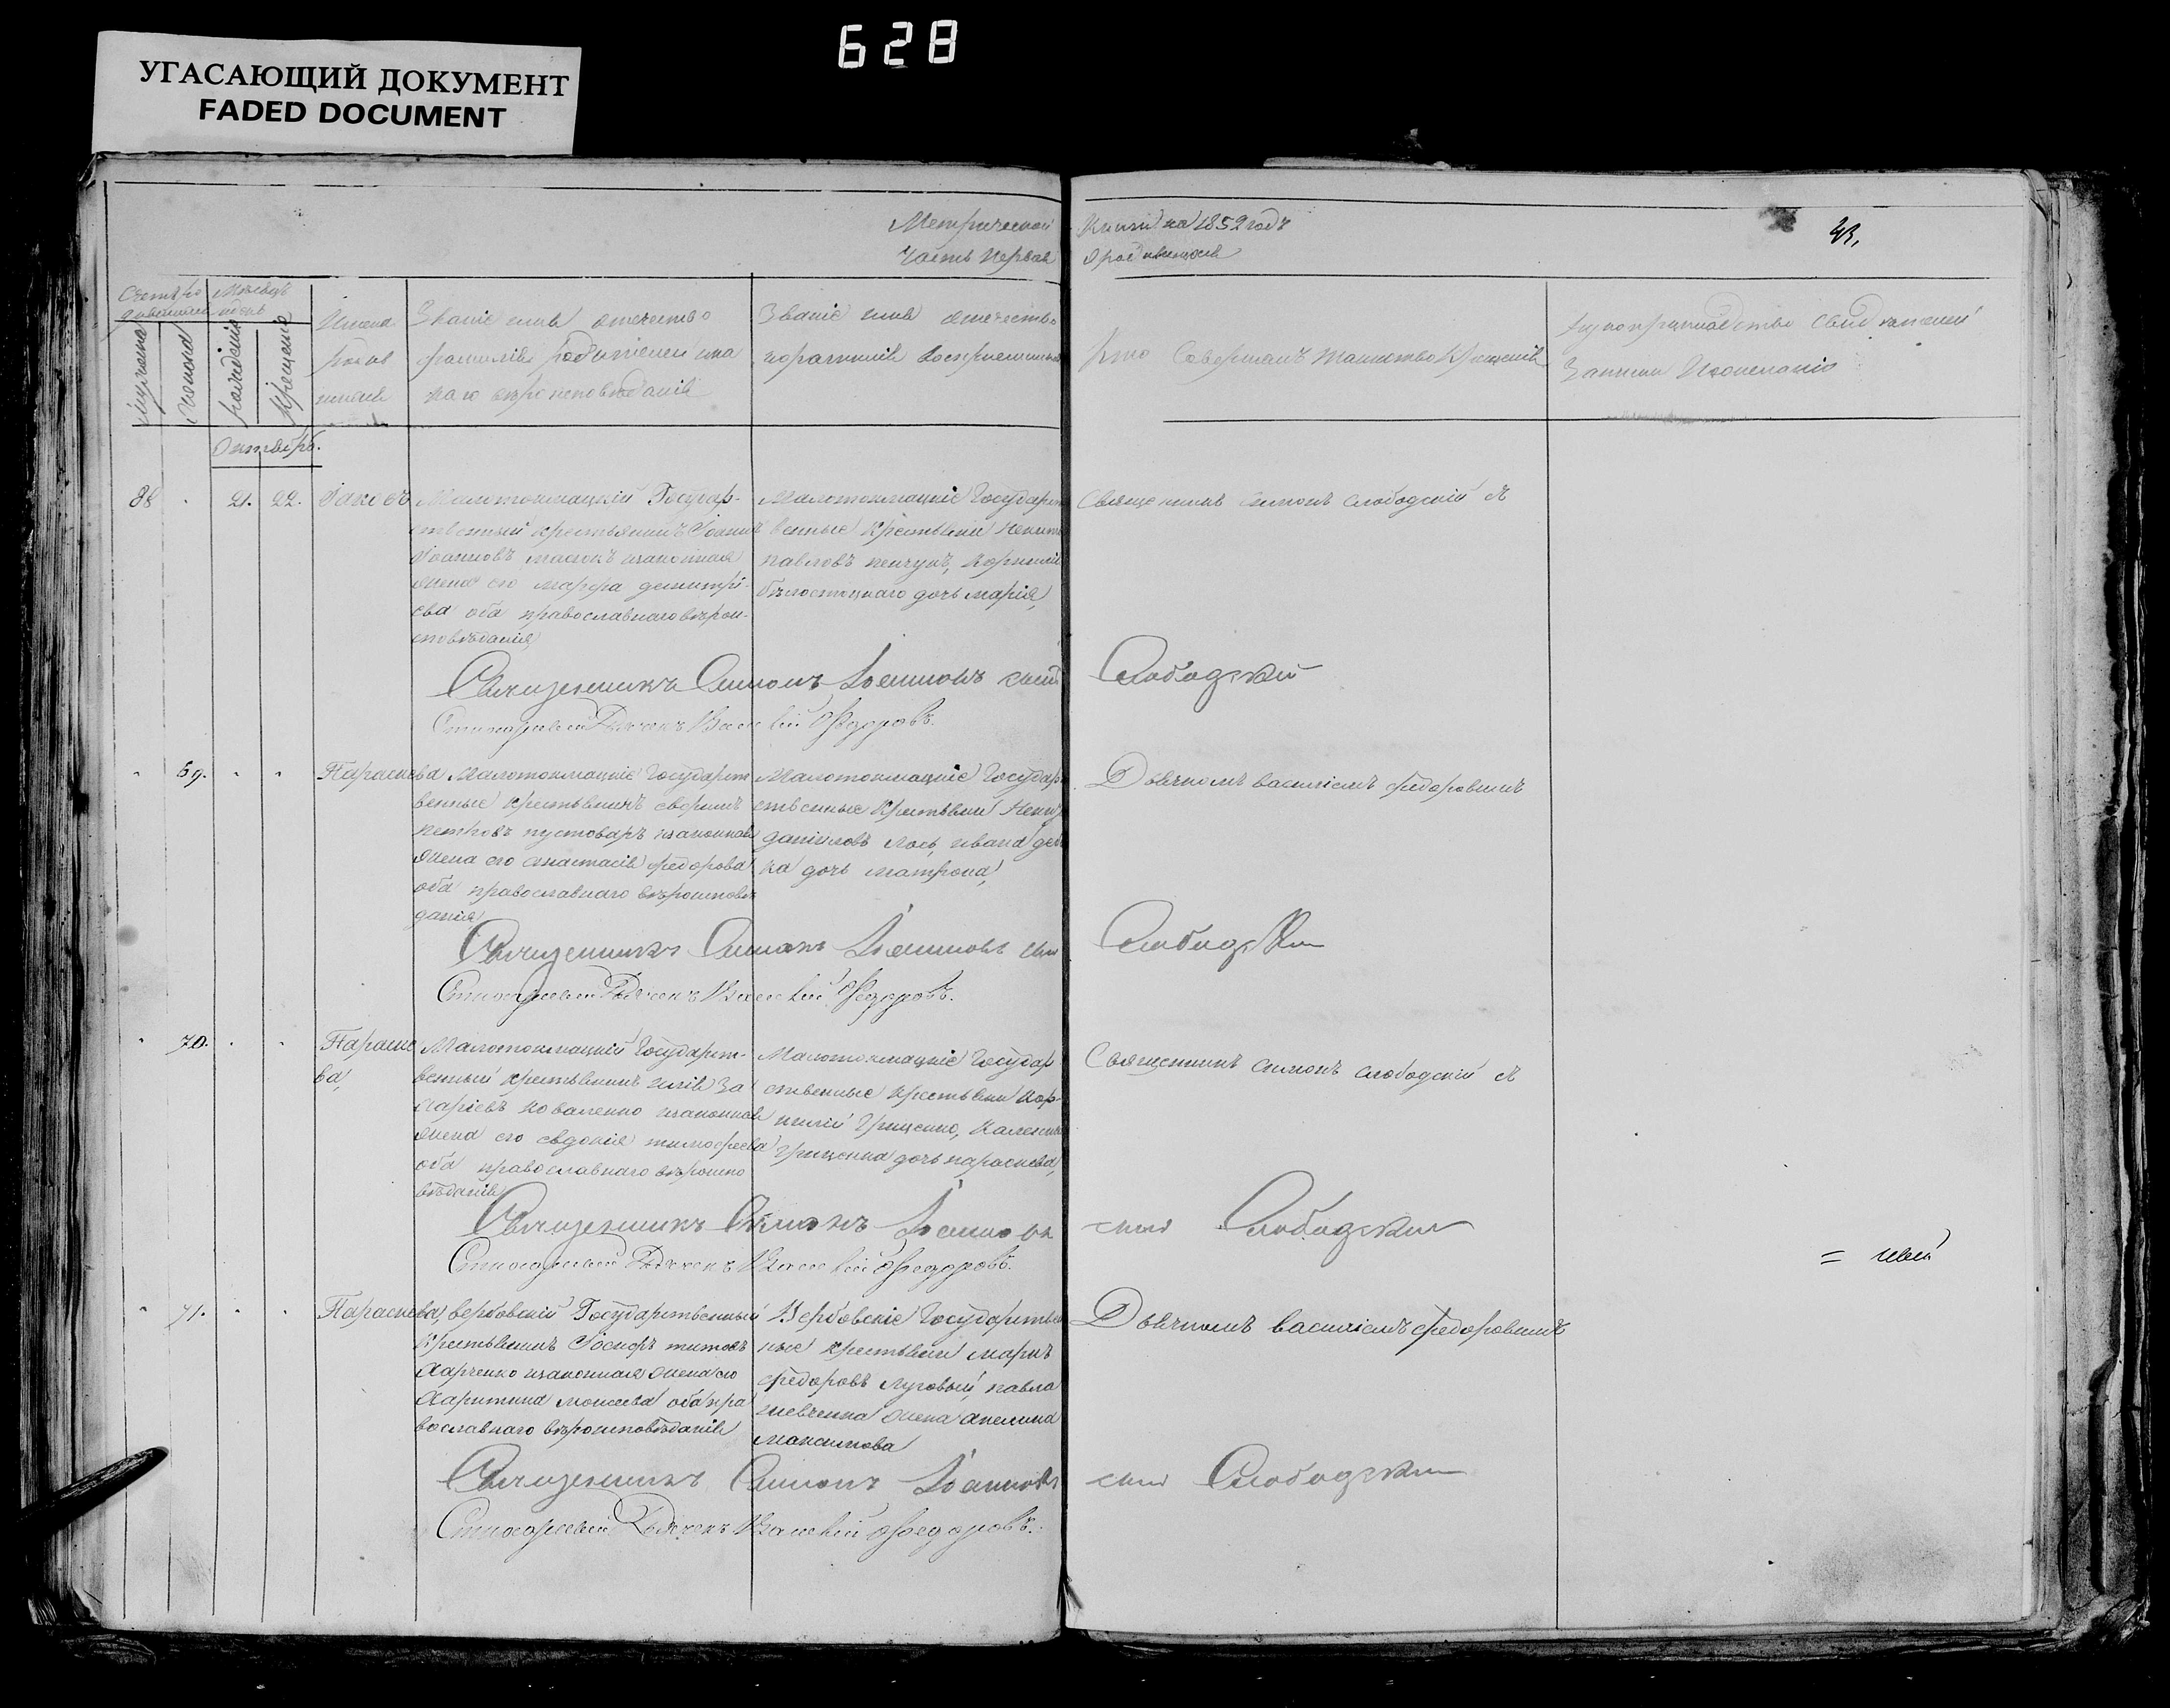 628
УГАСАЮЩИЙ ДОКУМЕНТ
FADED DOCUMENT
Метрической Книги на 1852 годъ
43.
Часть Первая О родившихся
Месяцъ
мужеска
женска
рожденія
крещенія
Имена
родив
шихся
Званіе имя отечество
фамилія родителей и ка
каго вѣроисповѣданія
Званіе имя отечество
и фамилія воспріемниковъ
Кто Совершалъ таинство Крещенія
Рукоприкладство свидѣтелей
Записи По желанію
Октябрь.
88 21. 22. Іаковъ
Малотокмацкій Государ-
ственный крестьянинъ Іоаннъ
Іоанновъ законная
жена его марфа димитрі-
ева оба православнаго вѣрои-
сповѣданія
Малотокмацкіе Государст
венные крестьяне
павловъ
дочь марія,
Священникъ симонъ слободскій
Священникъ Симонъ Іоанновъ сынъ Слободскій
Стихарный Дьячекъ Василій Федоровъ.
69. Параскева
Малотокмацкіе Государст
венные крестьянинъ
петровъ пустоваръ законная
жена его анастасія федорова
оба православнаго вѣроисповѣ
данія
Малотокмацкіе Государ
ственные крестьяне
даніиловъ Лось, ивана
ка дочь матрона,
Дьячкомъ василіемъ федоровымъ
Священникъ Симонъ Іоанновъ сынъ Слободскій
Стихарный Дьячекъ Василій Федоровъ.
70. Параске
ва,
Малотокмацкій Государст-
венный крестьянинъ илія За
харіевъ коваленко законная
жена его евдокія тимофеева
оба православнаго вѣроиспо
вѣданія
Малотокмацкіе Государ
ственные крестьяне Кор-
нилій Гриценко,
гриценка дочь параскева,
Священникъ симонъ слободскій
Священникъ Симонъ Іоанновъ сынъ Слободскій
Стихарный Дьячекъ Василій Федоровъ.
71. Параскева,
вербовскій Государственный
крестьянинъ Іосифъ титовъ
Харченко законная жена его
Харитина моисеева оба пра
вославнаго вѣроисповѣданія
Вербовскіе Государствен
ные крестьяне маркъ
федоровъ Луговый, павла
шевченка жена акилина
максимова
Дьячкомъ василіемъ федоровымъ
Священникъ Симонъ Іоанновъ сынъ Слободскій
Стихарный Дьячекъ Василій Федоровъ.